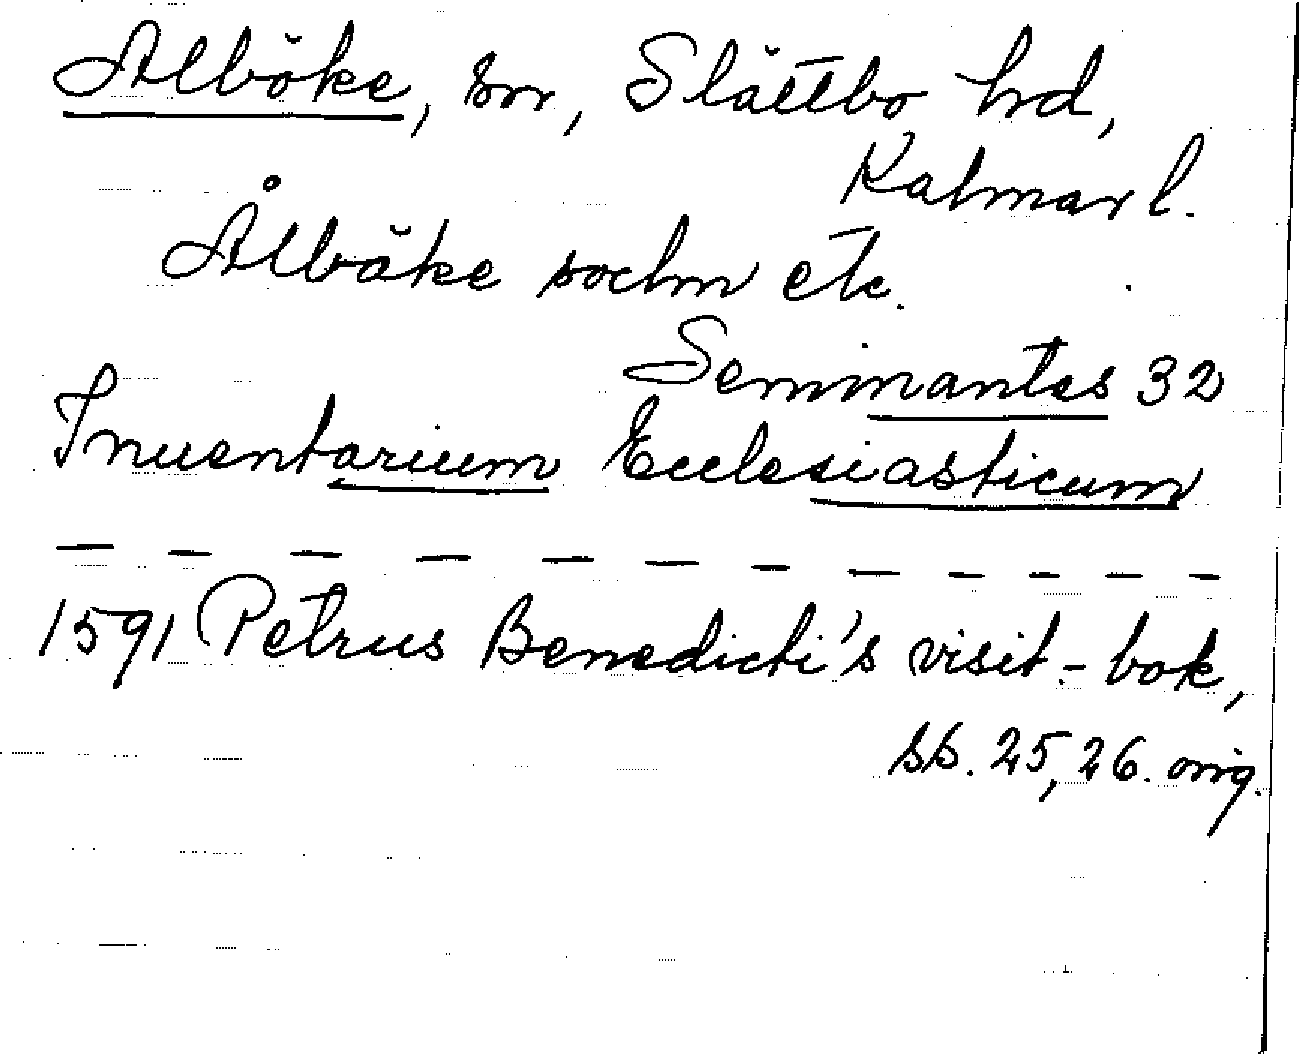 Alböke, sn, Slättbo hd,
Kalmar l.
Ålbäke sochn etc.
Seminantes 32
Inuentarium Ecclesiasticum
— — — — — — — — — — —
1591 Petrus Benedicti's visit.-bok,
ss. 25, 26. orig.